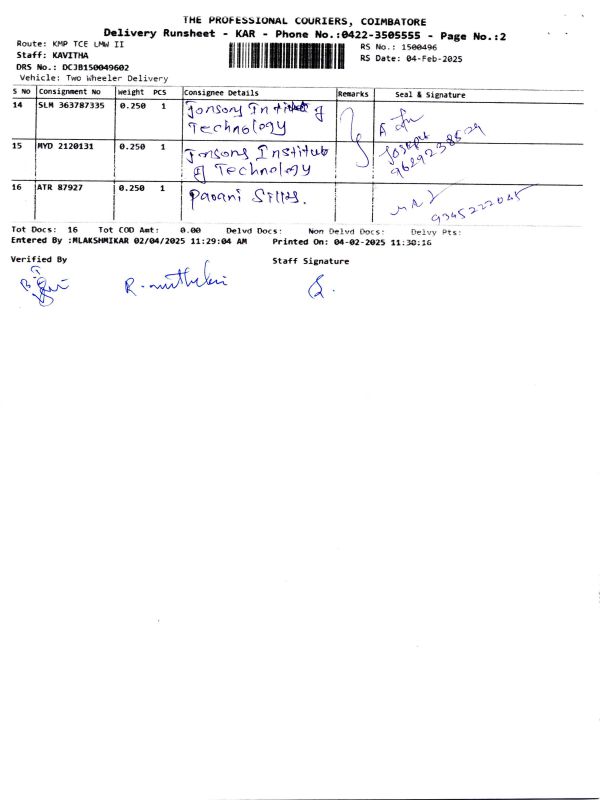 THE PROFESSIONAL COURIERS, COIMBATORE
Delivery Runsheet - KAR - Phone No.:0422-3505555 - Page No.:2
Route: KMP TCE LMW II
RS No.: 1500496
Staff: KAVITHA
RS Date: 04-Feb-2025
DRS No.: DCJB150049602
Vehicle: Two Wheeler Delivery
S No Consignment No Weight PCS Consignee Details Remarks Seal & Signature
14 SLM 363787335 0.250 1 Jansons Institute of
Technology
15 MYD 2120131 0.250 1 Jansons Institute
of Technology
Joseph
9629238529
16 ATR 87927 0.250 1 Pavani Silks.
9345222045
Tot Docs: 16 Tot COD Amt: 0.00 Delvd Docs: Non Delvd Docs: Delvy Pts:
Entered By :MLAKSHMIKAR 02/04/2025 11:29:04 AM Printed On: 04-02-2025 11:30:16
Verified By Staff Signature